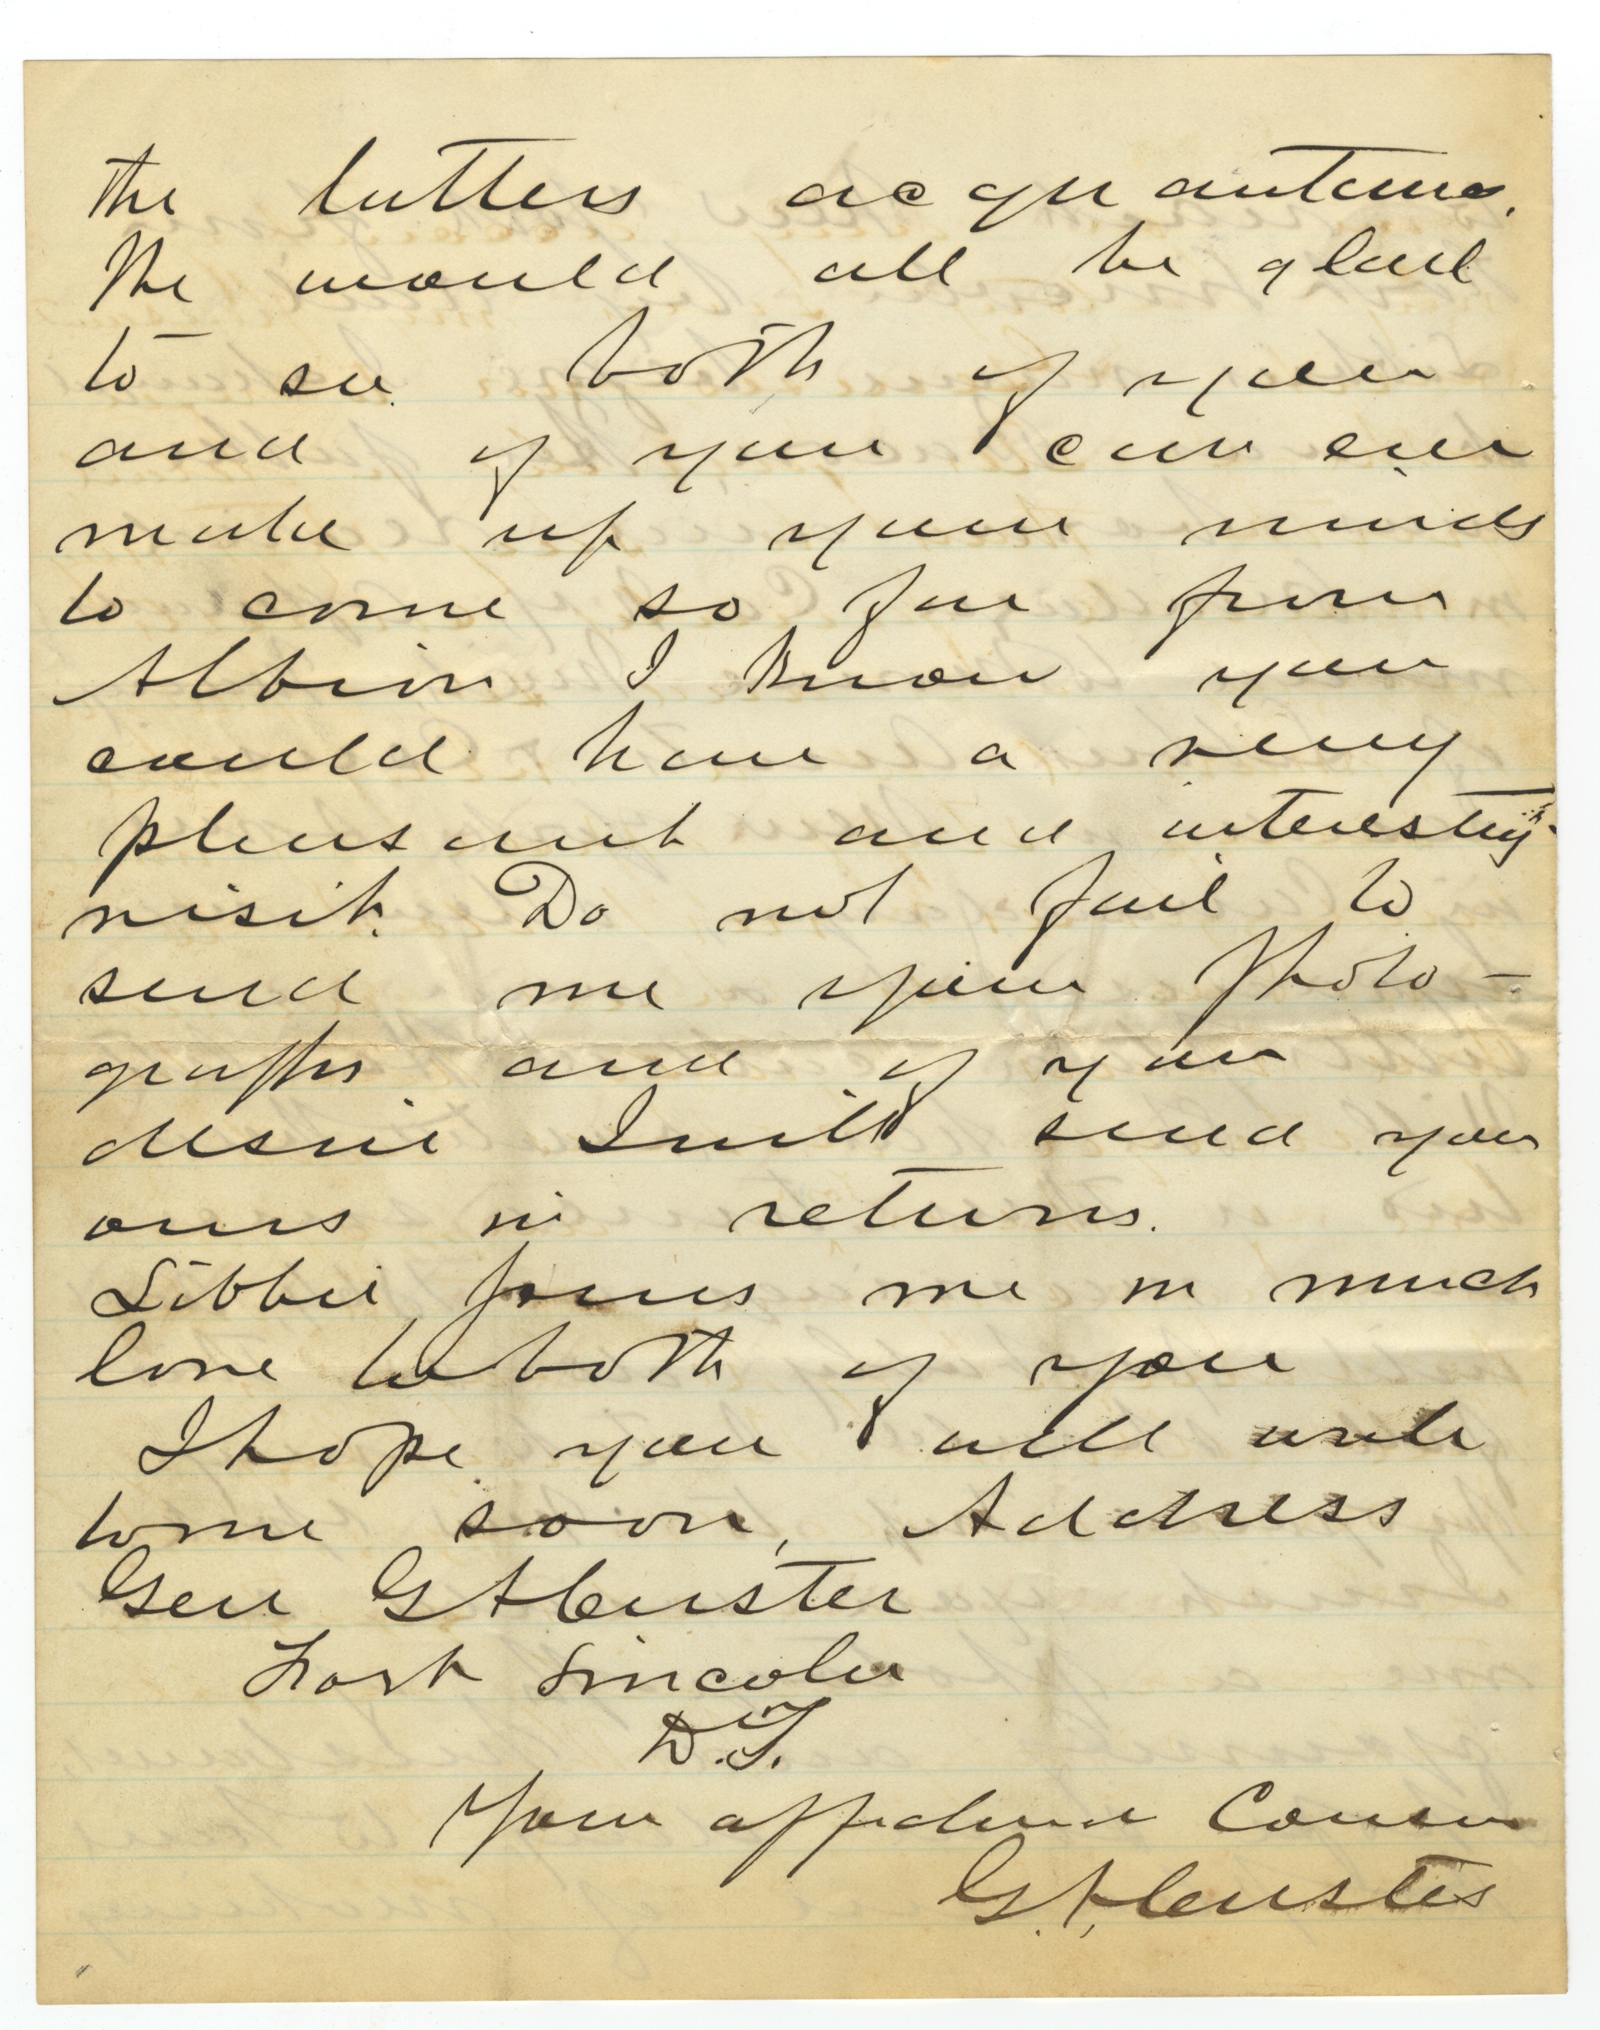 the latters acquantance.
We would all be glad
to see both of you
and if you can ever
make up your minds
to come so far from
Albion I know you
could have a very
pleasant and interesting
visit. Do not fail to
send me your photo-
graphs and if you
desire I will send you
ours in return.
Libbie joins me in much
love to both of you
I hope you will write
to me soon, Address
Gen G A Custer
Fort Lincoln
D.T.
Your affectionate Cousin
G. A. Custer